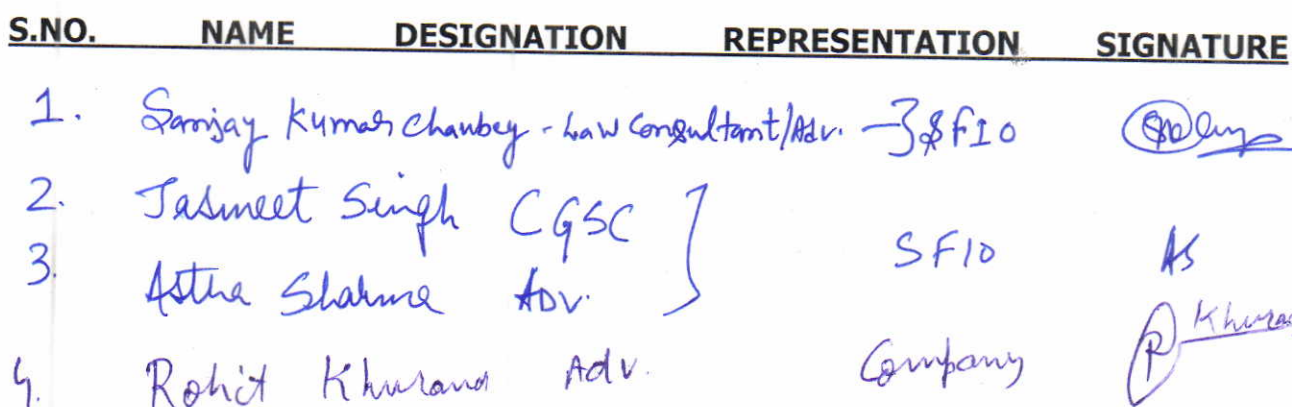 S.NO. NAME DESIGNATION REPRESENTATION SIGNATURE
1. Sanjay Kumar Chaubey - Law Consultant/Adv. SFIO
2. Jasmeet Singh CGSC
3. Astha Sharma Adv. SFIO AS
4. Rohit Khurana Adv. Company R Khurana